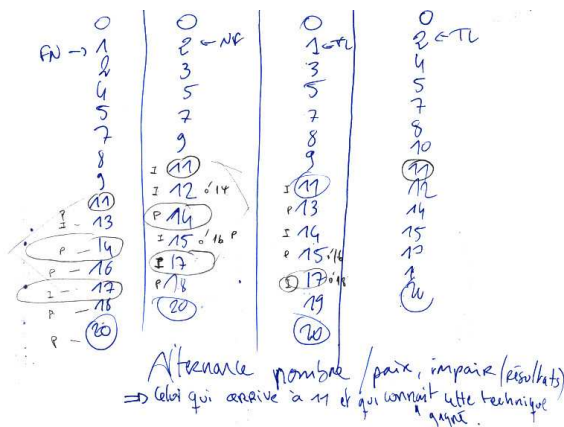 0
FN → 1
2
4
5
7
8
9
11
P I - 13
- 14
P - 16
I - 17
P - 18
P - 20
0
2 ← NF
3
5
7
9
I 11
I 12 ó 14
P 14
I 15 ó 16 P
I 17
P 18
20
0
1 ← TL
3
5
7
8
9
I 11
P 13
I 14
P 15 ó 16
I 17 ó 18
19
20
0
2 ← TL
4
5
7
8
10
11
12
14
15
20
Alternance nombre / paix, impair / (résultats)
=> Celui qui arrive à 11 et qui connaît cette technique
a gagné.